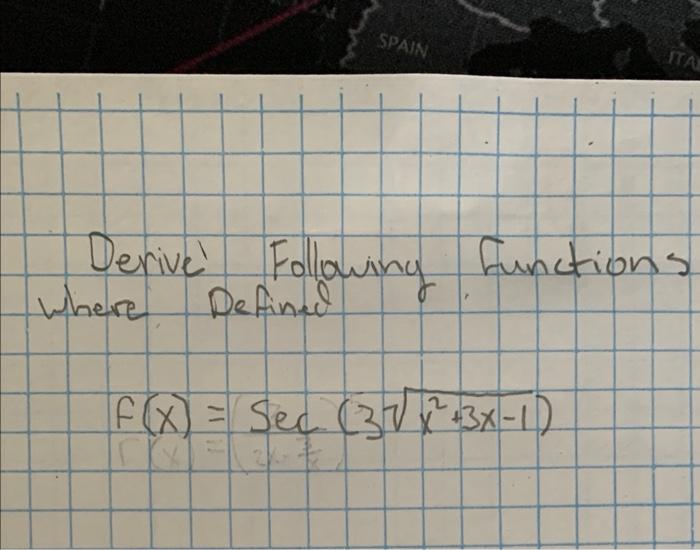 SPAIN
ITA
Derive' Following functions
where Defined
f(x) = Sec (3√x²+3x-1)